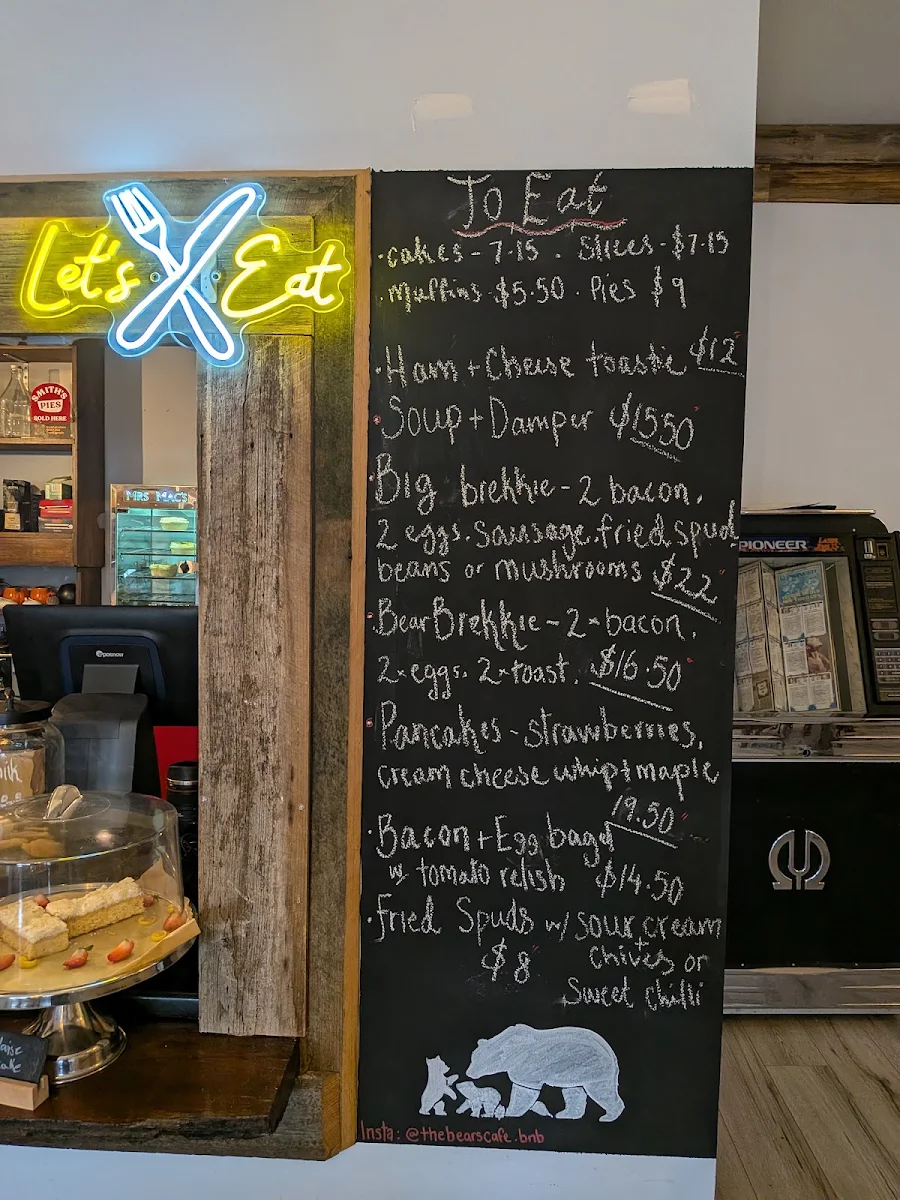 Let's Eat
SMITH'S
PIES
SOLD HERE
MRS MAC'S
To Eat
· cakes - 7.15 . Slices - $7.15
. Muffins - $5.50 . Pies $9
· Ham + Cheese toastie $12
· Soup + Damper $15.50
· Big brekkie - 2 bacon.
2 eggs. sausage. fried spud
beans or mushrooms $22
· Bear Brekkie - 2 x bacon.
2 x eggs. 2 x toast. $16.50
· Pancakes - strawberries,
cream cheese whip + maple
19.50
· Bacon + Egg bagel
w tomato relish $14.50
· Fried Spuds w/ sour cream
$8 Chives or
Sweet chilli
Insta: @thebearscafe.bnb
PIONEER